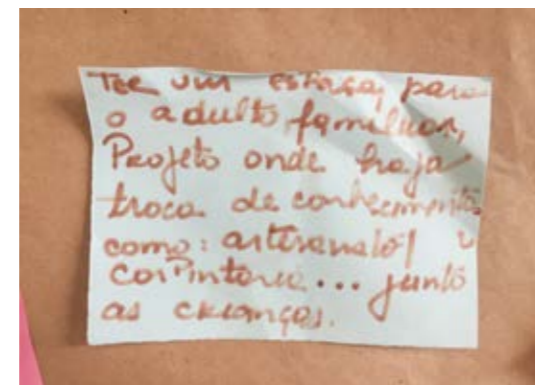 Ter um espaço, para
o adulto familiar,
Projeto onde haja
troca de conhecimentos
como: artesanato/
carpintaria... junto
as crianças.